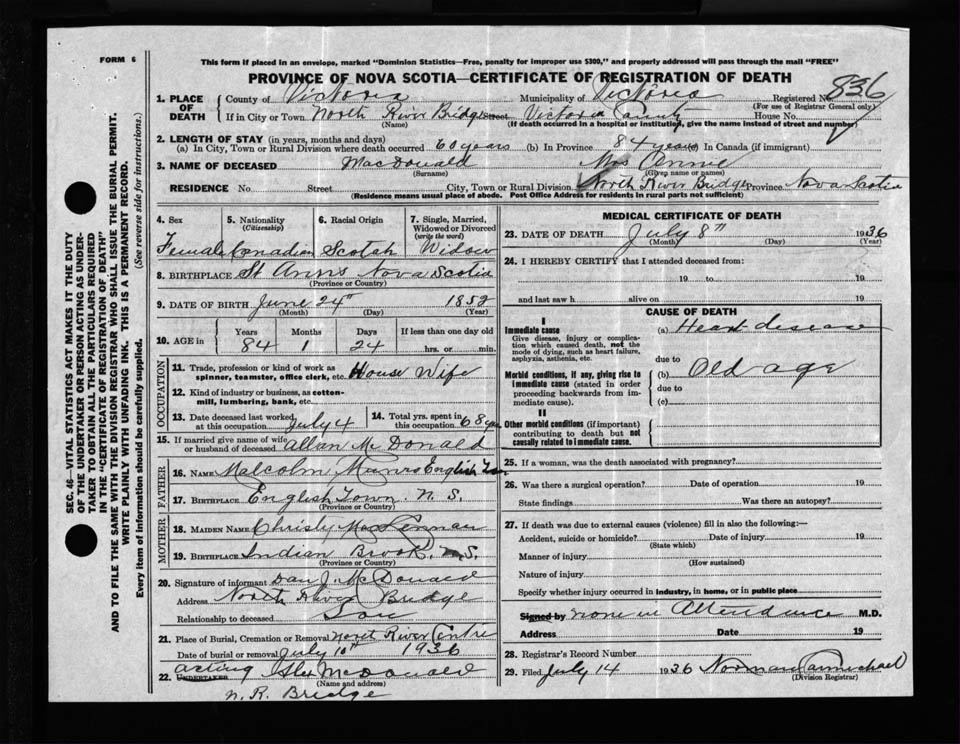 FORM 6
This form if placed in an envelope, marked "Dominion Statistics—Free, penalty for improper use $300," and properly addressed will pass through the mail "FREE"
PROVINCE OF NOVA SCOTIA—CERTIFICATE OF REGISTRATION OF DEATH
SEC. 46—VITAL STATISTICS ACT MAKES IT THE DUTY
OF THE UNDERTAKER OR PERSON ACTING AS UNDER-
TAKER TO OBTAIN ALL THE PARTICULARS REQUIRED
IN THE "CERTIFICATE OF REGISTRATION OF DEATH"
AND TO FILE THE SAME WITH THE DIVISION REGISTRAR WHO SHALL ISSUE THE BURIAL PERMIT.
WRITE PLAINLY WITH UNFADING INK. THIS IS A PERMANENT RECORD.
Every item of information should be carefully supplied. (See reverse side for instructions.)
1. PLACE OF DEATH
County of Victoria Municipality of Victoria Registered No. 836
(For use of Registrar General only)
If in City or Town North River Bridge Street Victoria County House No.
(Name) (If death occurred in a hospital or institution, give the name instead of street and number)
2. LENGTH OF STAY (in years, months and days)
(a) In City, Town or Rural Division where death occurred 60 years (b) In Province 84 years (c) In Canada (if immigrant)
3. NAME OF DECEASED MacDonald Mrs Annie
(Surname) (Given name or names)
RESIDENCE No. Street City, Town or Rural Division North River Bridge Province Nova Scotia
(Residence means usual place of abode. Post Office Address for residents in rural parts not sufficient)
4. Sex
Female
5. Nationality
(Citizenship)
Canadian
6. Racial Origin
Scotch
7. Single, Married,
Widowed or Divorced
(write the word)
Widow
8. BIRTHPLACE St Anns Nova Scotia
(Province or Country)
9. DATE OF BIRTH June 24th 1852
(Month) (Day) (Year)
10. AGE in
Years Months Days If less than one day old
84 1 24 hrs. or min.
OCCUPATION
11. Trade, profession or kind of work as
spinner, teamster, office clerk, etc. House Wife
12. Kind of industry or business, as cotton-
mill, lumbering, bank, etc.
13. Date deceased last worked
at this occupation July 4
14. Total yrs. spent in
this occupation 68 yrs
15. If married give name of wife
or husband of deceased Allan McDonald
FATHER
16. NAME Malcolm Munro English Town
17. BIRTHPLACE English Town N. S.
(Province or Country)
MOTHER
18. MAIDEN NAME Christy MacLennan
19. BIRTHPLACE Indian Brook, N.S.
(Province or Country)
20. Signature of informant Dan J. McDonald
Address North River Bridge
Relationship to deceased Son
21. Place of Burial, Cremation or Removal North River Centre
Date of burial or removal July 10th 1936
acting
22. UNDERTAKER Alex McDonald
(Name and address)
N. R. Bridge
MEDICAL CERTIFICATE OF DEATH
23. DATE OF DEATH July 8th 1936
(Month) (Day) (Year)
24. I HEREBY CERTIFY that I attended deceased from:
19 to 19
and last saw h alive on 19
CAUSE OF DEATH
I
Immediate cause
Give disease, injury or complica-
tion which caused death, not the
mode of dying, such as heart failure,
asphyxia, asthenia, etc.
(a) Heart disease
due to
Morbid conditions, if any, giving rise to
immediate cause (stated in order
proceeding backwards from im-
mediate cause).
(b) Old age
due to
(c)
II
Other morbid conditions (if important)
contributing to death but not
causally related to immediate cause.
25. If a woman, was the death associated with pregnancy?
26. Was there a surgical operation? Date of operation 19
State findings Was there an autopsy?
27. If death was due to external causes (violence) fill in also the following:—
Accident, suicide or homicide? Date of injury 19
(State which)
Manner of injury
(How sustained)
Nature of injury
Specify whether injury occurred in industry, in home, or in public place
Signed by none in Attendance M.D.
Address Date 19
28. Registrar's Record Number
29. Filed July 14 1936 Norman Carmichael
(Division Registrar)